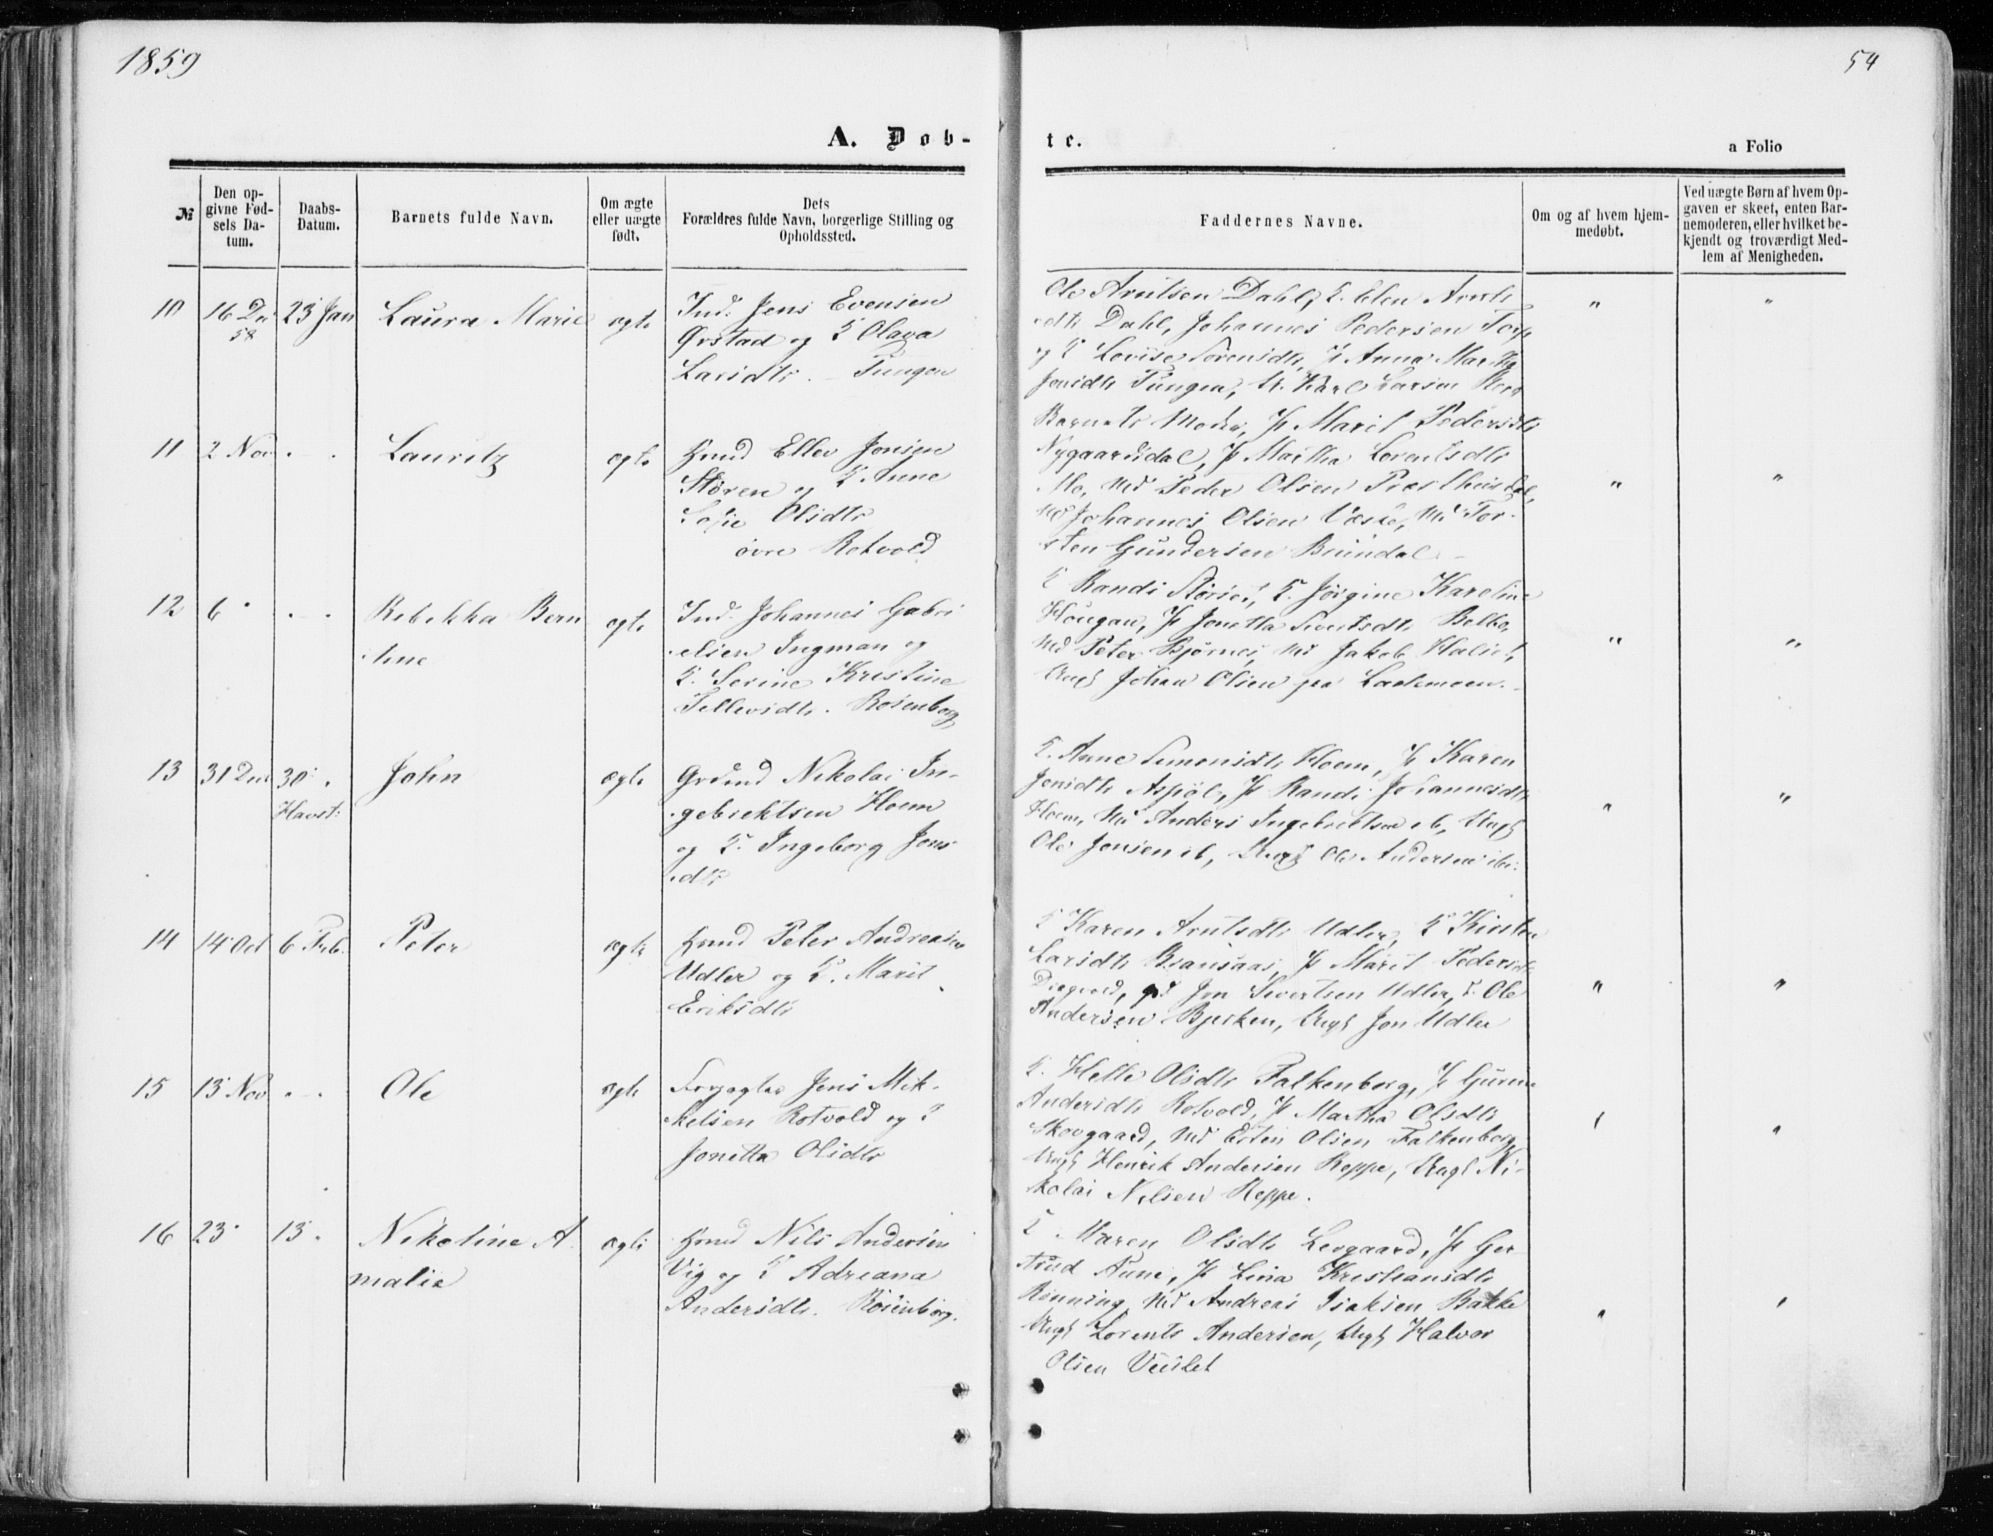 1859
54
A. Døb-
te.
a Folio
№
Den op-
givne Fød-
sels Da-
tum.
Daabs-
Datum.
Barnets fulde Navn.
Om ægte
eller uægte
født.
Dets
Forældres fulde Navn, borgerlige Stilling og
Opholdssted.
Faddernes Navne.
Om og af hvem hjem-
medøbt.
Ved uægte Børn af hvem Op-
gaven er skeet, enten Bar-
nemoderen, eller hvilket be-
kjendt og troværdigt Med-
lem af Menigheden.
10 16 De 58 23 Jan Laura Marie ægte
Ind. Jens Evensen
Ørstad og K Olava
Larsdtr. Tungen
Ole Arntsen Dahl, K. Elen Arnts
dtr Dahl, Johannes Pedersen Torp
og K Lovise Sorensdtr, P Anna Martha
Jensdtr Tungen, Karl Larsen
" "
11 2 Nov - - Lauritz ægte
Hmd Ellev Jensen
Støren og K Anne
Sofie Olsdtr
øvre Rotvold
Barnets Moder, P Marit Pedersdtr
Nygaardsdal, P Martha Lorentsdtr
Mo, Md Peder Olsen
Md Johannes Olsen Md Tor-
sten Gundersen
" "
12 6 " - - Rebekka Bern
tine ægte
Ind. Johannes Gabri
elsen Ingman og
K. Serine Kristine
Tellevsdtr. Rosenborg
K Randi K. Jørgine Karoline
Hougan, P Jonetta
Md Peter Bjørnes, Md Jakob
Ungk Johan Olsen
" "
13 31 Des 30 " Havst: John ægte
Grdmd Nikolai In-
gebrektsen Hoem
og K. Ingeborg Jons
dtr
K. Anne Simonsdtr Hoem, P Karen
Jonsdtr P Randi Johannesdtr
Hoem, Md Anders Ingebriktsen ib, Ungk
Ole Jonsen ib, Ungk Ole Andersen ibi.
" "
14 14 Oct 6 Feb. Peter ægte
Hmd Peter Andreasen
Udler og K. Marit
Eriksdtr
K Karen Arntsdtr Udler, K Kirsten
Larsdtr P Marit Pedersdtr
Jon Sivertsen Udler, Ole
Andersen Bjerken, Ungk Jon Udler
" "
15 15 Nov - - Ole ægte
Forpagter Jens Mik-
kelsen Rotvold og K
Jonetta Olsdtr
K. Helle Olsdtr Falkenborg, P Guru
Andersdtr Rotvold, P Martha Olsdtr
Skovgaard, Md Esten Olsen Falkenborg,
Ungk Henrik Andersen Reppe, Ungk Ni-
kolai Nilsen Reppe.
" "
16 23 " 13 " Nikoline A
malie ægte
Hmd Nils Andersen
Vig og K Adriana
Andersdtr. Rosenborg.
K Maren Olsdtr P Ger-
trud Aune, P Lina Kristiansdtr
Rønning, Md Andreas Isaksen Bakke
Ungk Lorents Andersen, Ungk Halvor
Olsen
" "